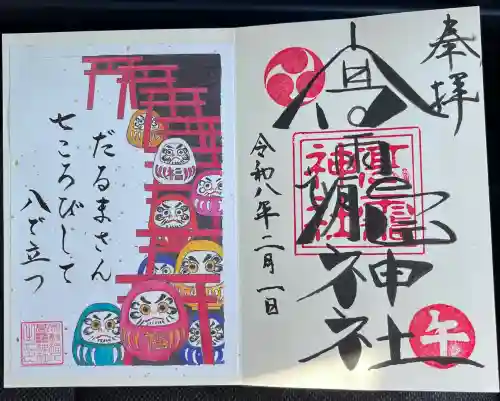 奉拝
高靇神社
令和八年二月一日
午
だるまさん
七ころびして
八で立つ
福